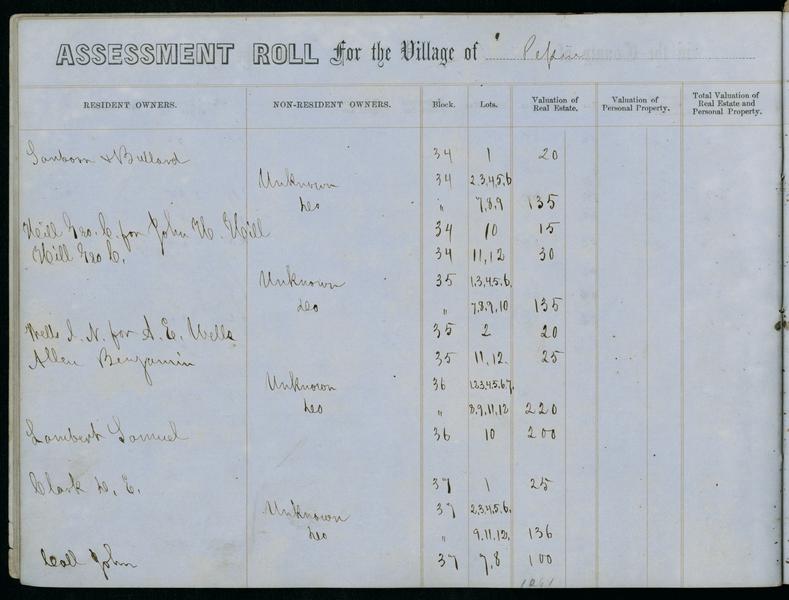 ASSESSMENT ROLL For the Village of Pepin
RESIDENT OWNERS. NON-RESIDENT OWNERS. Block. Lots. Valuation of Real Estate. Valuation of Personal Property. Total Valuation of Real Estate and Personal Property.
Sanborn & Bullard 34 1 20
Unknown 34 2,3,4,5,6
Do " 7,8,9 135
Hill Geo. C. for John W. Hill 34 10 15
Hill Geo C. 34 11,12 30
Unknown 35 1,3,4,5,6.
Do " 7,8,9,10 135
Wells I. N. for A. E. Wells 35 2 20
Allen Benjamin 35 11,12. 25
Unknown 36 1,2,3,4,5,6,7,
Do " 8,9,11,12 220
Lambert Samuel 36 10 200
Clark D. E. 37 1 25
Unknown 37 2,3,4,5,6.
Do " 9,11,12, 136
Coll John 37 7,8 100